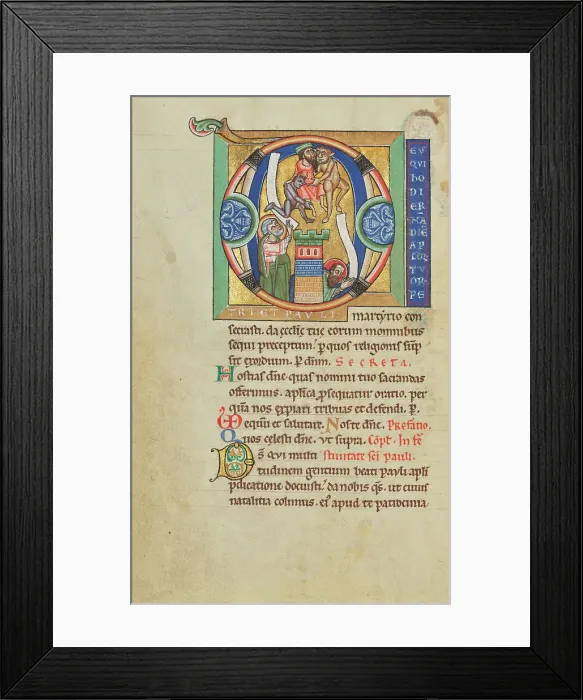 EV
QVI
HO
DI
ER
NA
DIE
APL
TRI ET PAVLI
martyrio con
secrasti. da eccłie tue eorum in omnibus
sequi preceptum. p quos religionis sūp
sit exordium. P dnm. SECRETA.
Hostias dne quas nomini tuo sacrandas
offerimus. aplica psequatur oratio. per
quā nos expiari tribuas et defendi. P.
equm et salutare. Nos te dne. Prefatio.
Quos celesti dne. vt supra. Cōpl. In fe
D̄S QVI multi stiuitate sci pauli.
tudinem gentium beati pavli apli
pdicatione docuisti. da nobis qs. ut cuius
natalitia colimus. ei apud te patrocinia